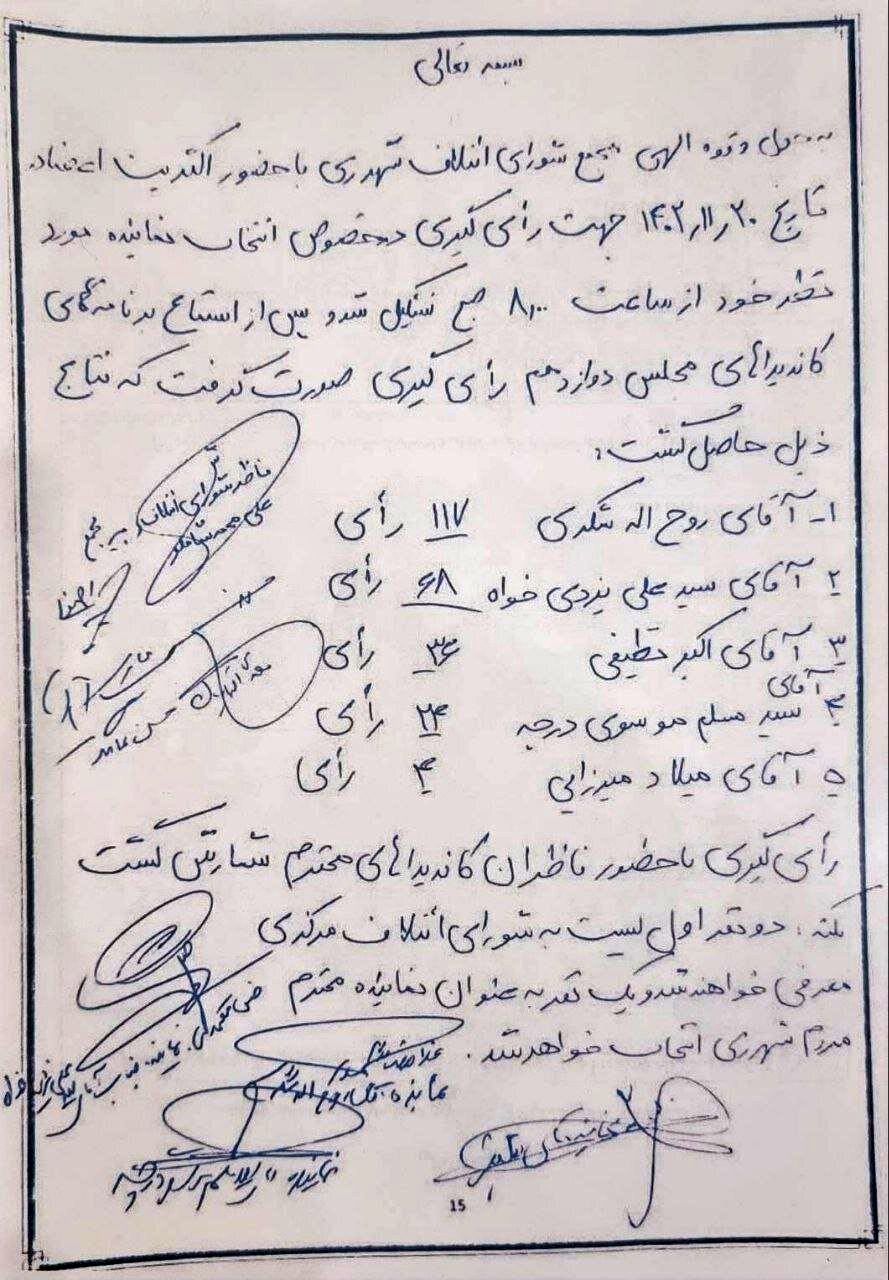 بسمه تعالی
به حول و قوه الهی مجمع شورای ائتلاف شهرری با حضور اکثریت اعضاء در
تاریخ ۱۴۰۲٫۱۱٫۲۰ جهت رأی گیری درخصوص انتخاب نماینده مورد
نظر خود از ساعت ۸٫۰۰ صبح تشکیل شد و پس از استماع برنامه های
کاندیداهای مجلس دوازدهم رأی گیری صورت گرفت که نتایج
ذیل حاصل گشت:
۱- آقای روح اله شکری ۱۱۷ رأی
۲ آقای سید علی یزدی خواه ۶۸ رأی
۳ آقای اکبر نظیفی ۳۶ رأی
۴ آقای سید مسلم موسوی درچه ۲۴ رأی
۵ آقای میلاد میرزایی ۴ رأی
رأی گیری با حضور ناظران کاندیداهای محترم شمارش گشت
نکته: دو نفر اول لیست به شورای ائتلاف مرکزی
معرفی خواهند شد و یک نفر به عنوان نماینده محترم
مردم شهرری انتخاب خواهد شد.
ناظر شورای ائتلاف
نماینده
15